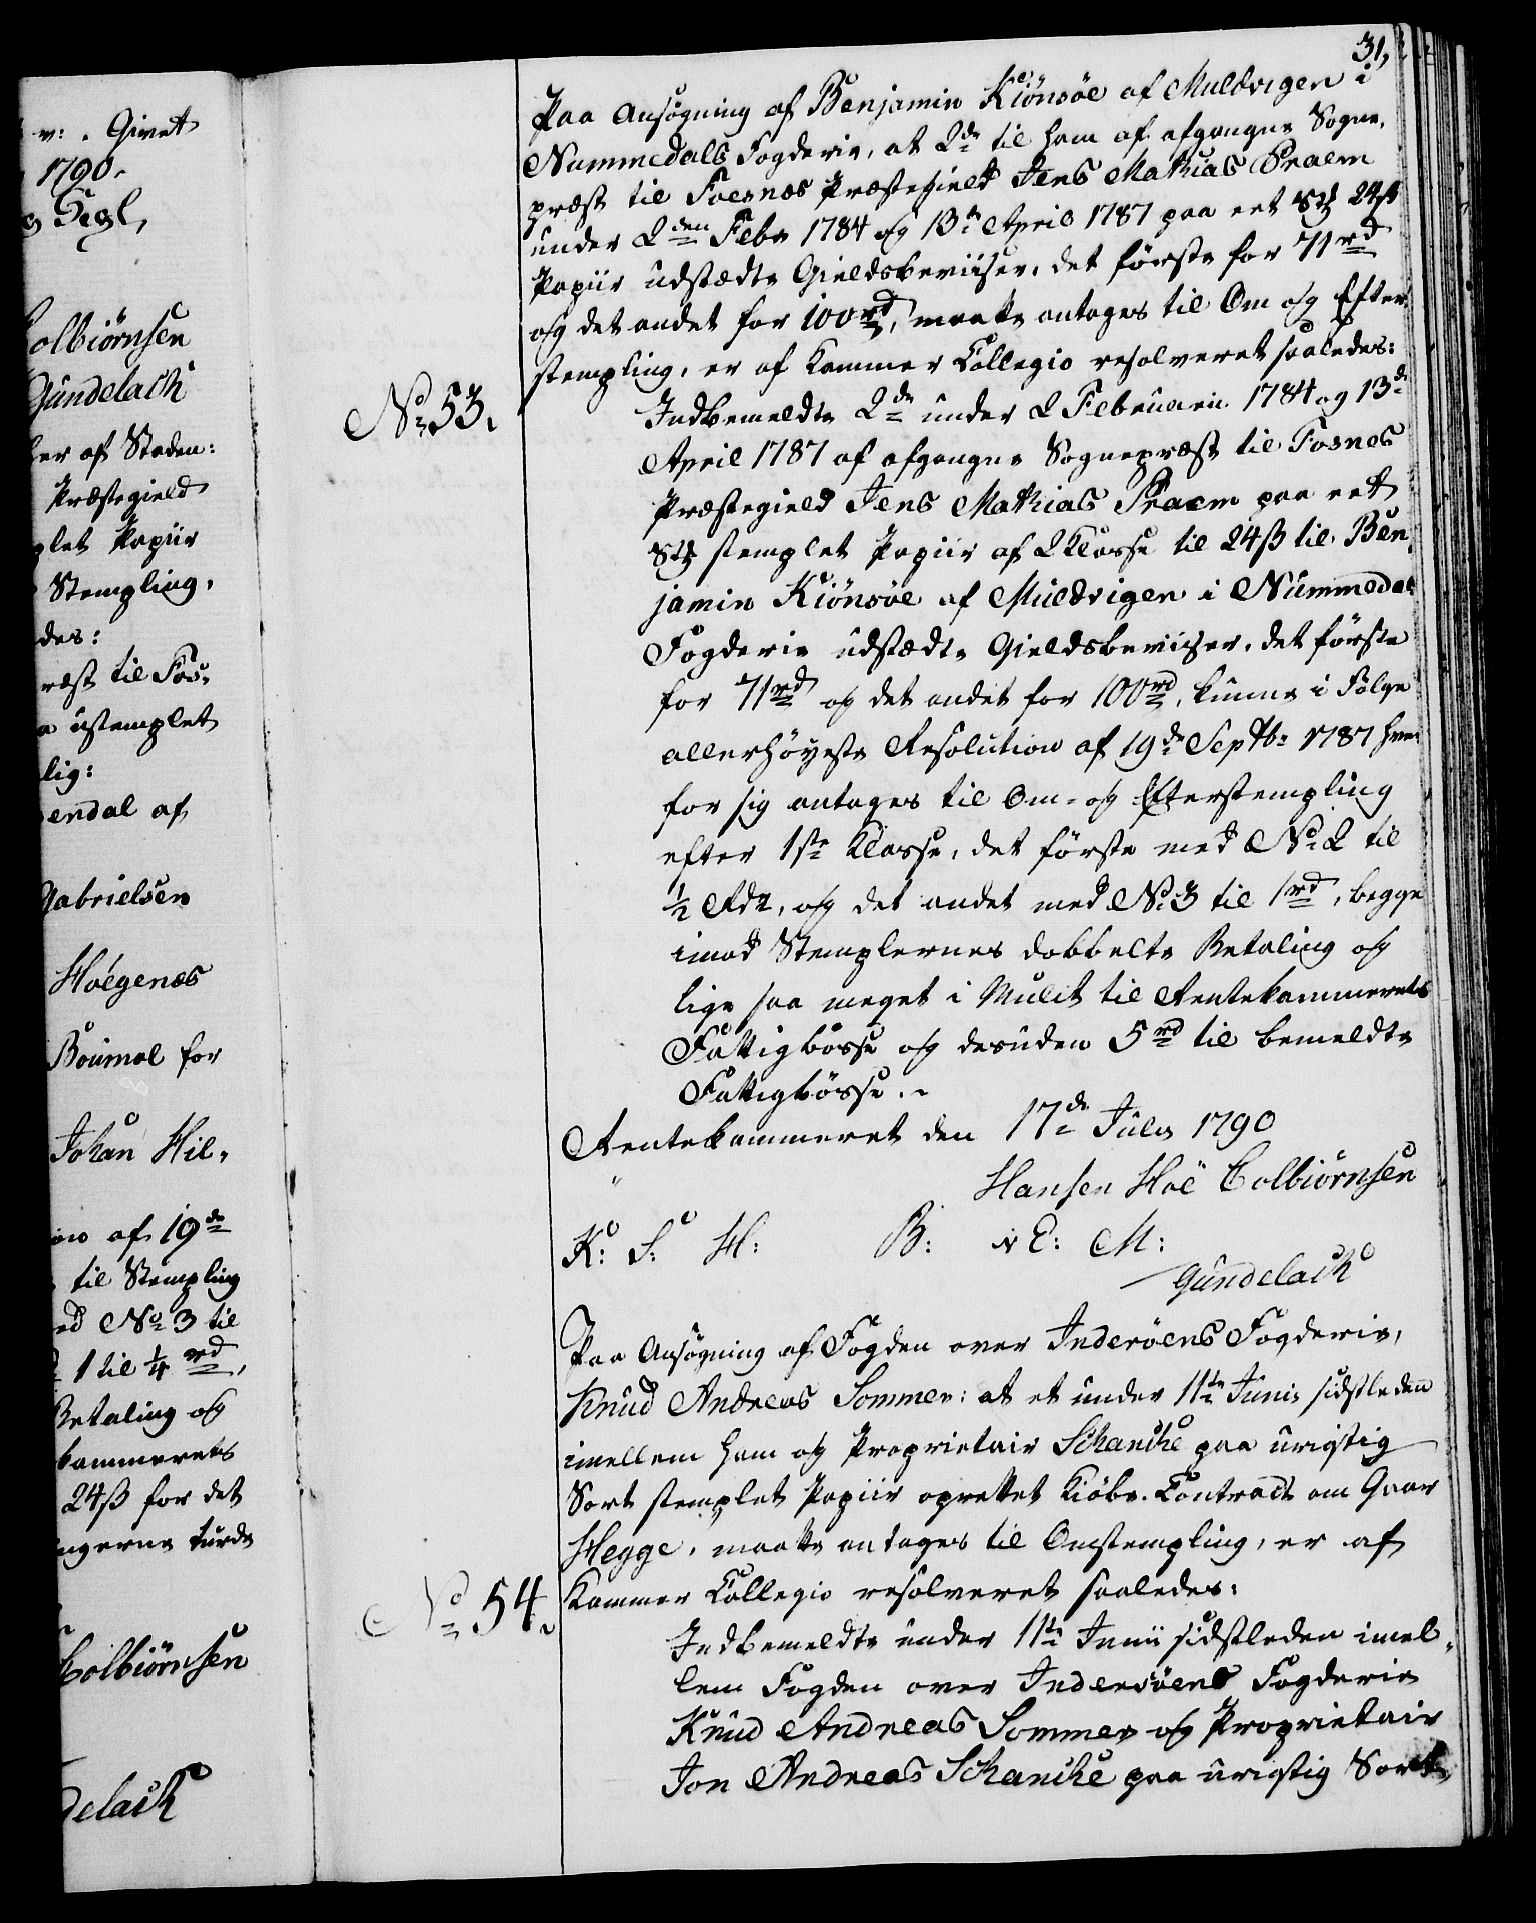 31,
v: . Givet
1790.
Segl,
Colbiörnsen
Gundelach
her af Staden:
Præstegield
plet Papiir
Stempling,
des:
ræst til Fos-
ustemplet
lig:
endal af
Gabrielsen
Höegenæs
Boumal for
Johan Hil-
af 19de
til Stempling
ed No 3 til
1 til 1/4 rd,
Betaling og
kammerets
24ß for det
ngerne turde
Colbiörnsen
delach
Paa Ansøgning af Benjamin Kiönsöe af Muldvigen i
Nummedals Fogderie, at 2de til ham af afgangne Sogne-
præst til Foesnæs Præstegield Jens Mathias Praem
under 2den Febr 1784 og 13de April 1787 paa eet Stk 24ß
Papiir udstædte Gieldsbeviiser, det første for 71rd
og det andet for 100rd, maatte antages til Om og Efter-
stempling, er af Kammer Collegio resolveret saaledes:
No 53.
Indbemeldte 2de under 2 Februarii 1784 og 13de
April 1787 af afgangne Sognepræst til Fosnes
Præstegield Jens Mathias Praem paa eet
Stk stemplet Papiir af 2 Klasse til 24ß til Ben-
jamin Kiönsöe af Muldvigen i Nummedals
Fogderie udstædte Gieldsbeviiser, det første
for 71rd og det andet for 100rd, kunne i Følge
allerhøyeste Resolution af 19de Septbr 1787 hver
for sig antages til Om- og Efterstempling
efter 1ste Klasse, det første med No 2 til
1/2 Rdr, og det andet med No 3 til 1rd, begge
imod Stemplernes dobbelte Betaling og
lige saa meget i Mulct til Rentekammerets
Fattigbøsse og desuden 5rd til bemeldte
Fattigbøsse.
Rentekammeret den 17de Julii 1790
Hansen Höe Colbiörnsen
K: S: H: B: E: M:
Gundelach
Paa Ansøgning af Fogden over Inderöens Fogderie,
Knud Andreas Sommer: at et under 11te Junii sidstleden
imellem ham og Proprietair Schanche paa urigtig
Sort stemplet Papiir oprettet Kiöbe-Contract om Gaar
Hegge, maatte antages til Omstempling, er af
Kammer Collegio resolveret saaledes:
No 54.
Indbemeldte under 11te Junii sidstleden imel-
lem Fogden over Inderöens Fogderie
Knud Andreas Sommer og Proprietair
Jon Andreas Schanche paa urigtig Sort